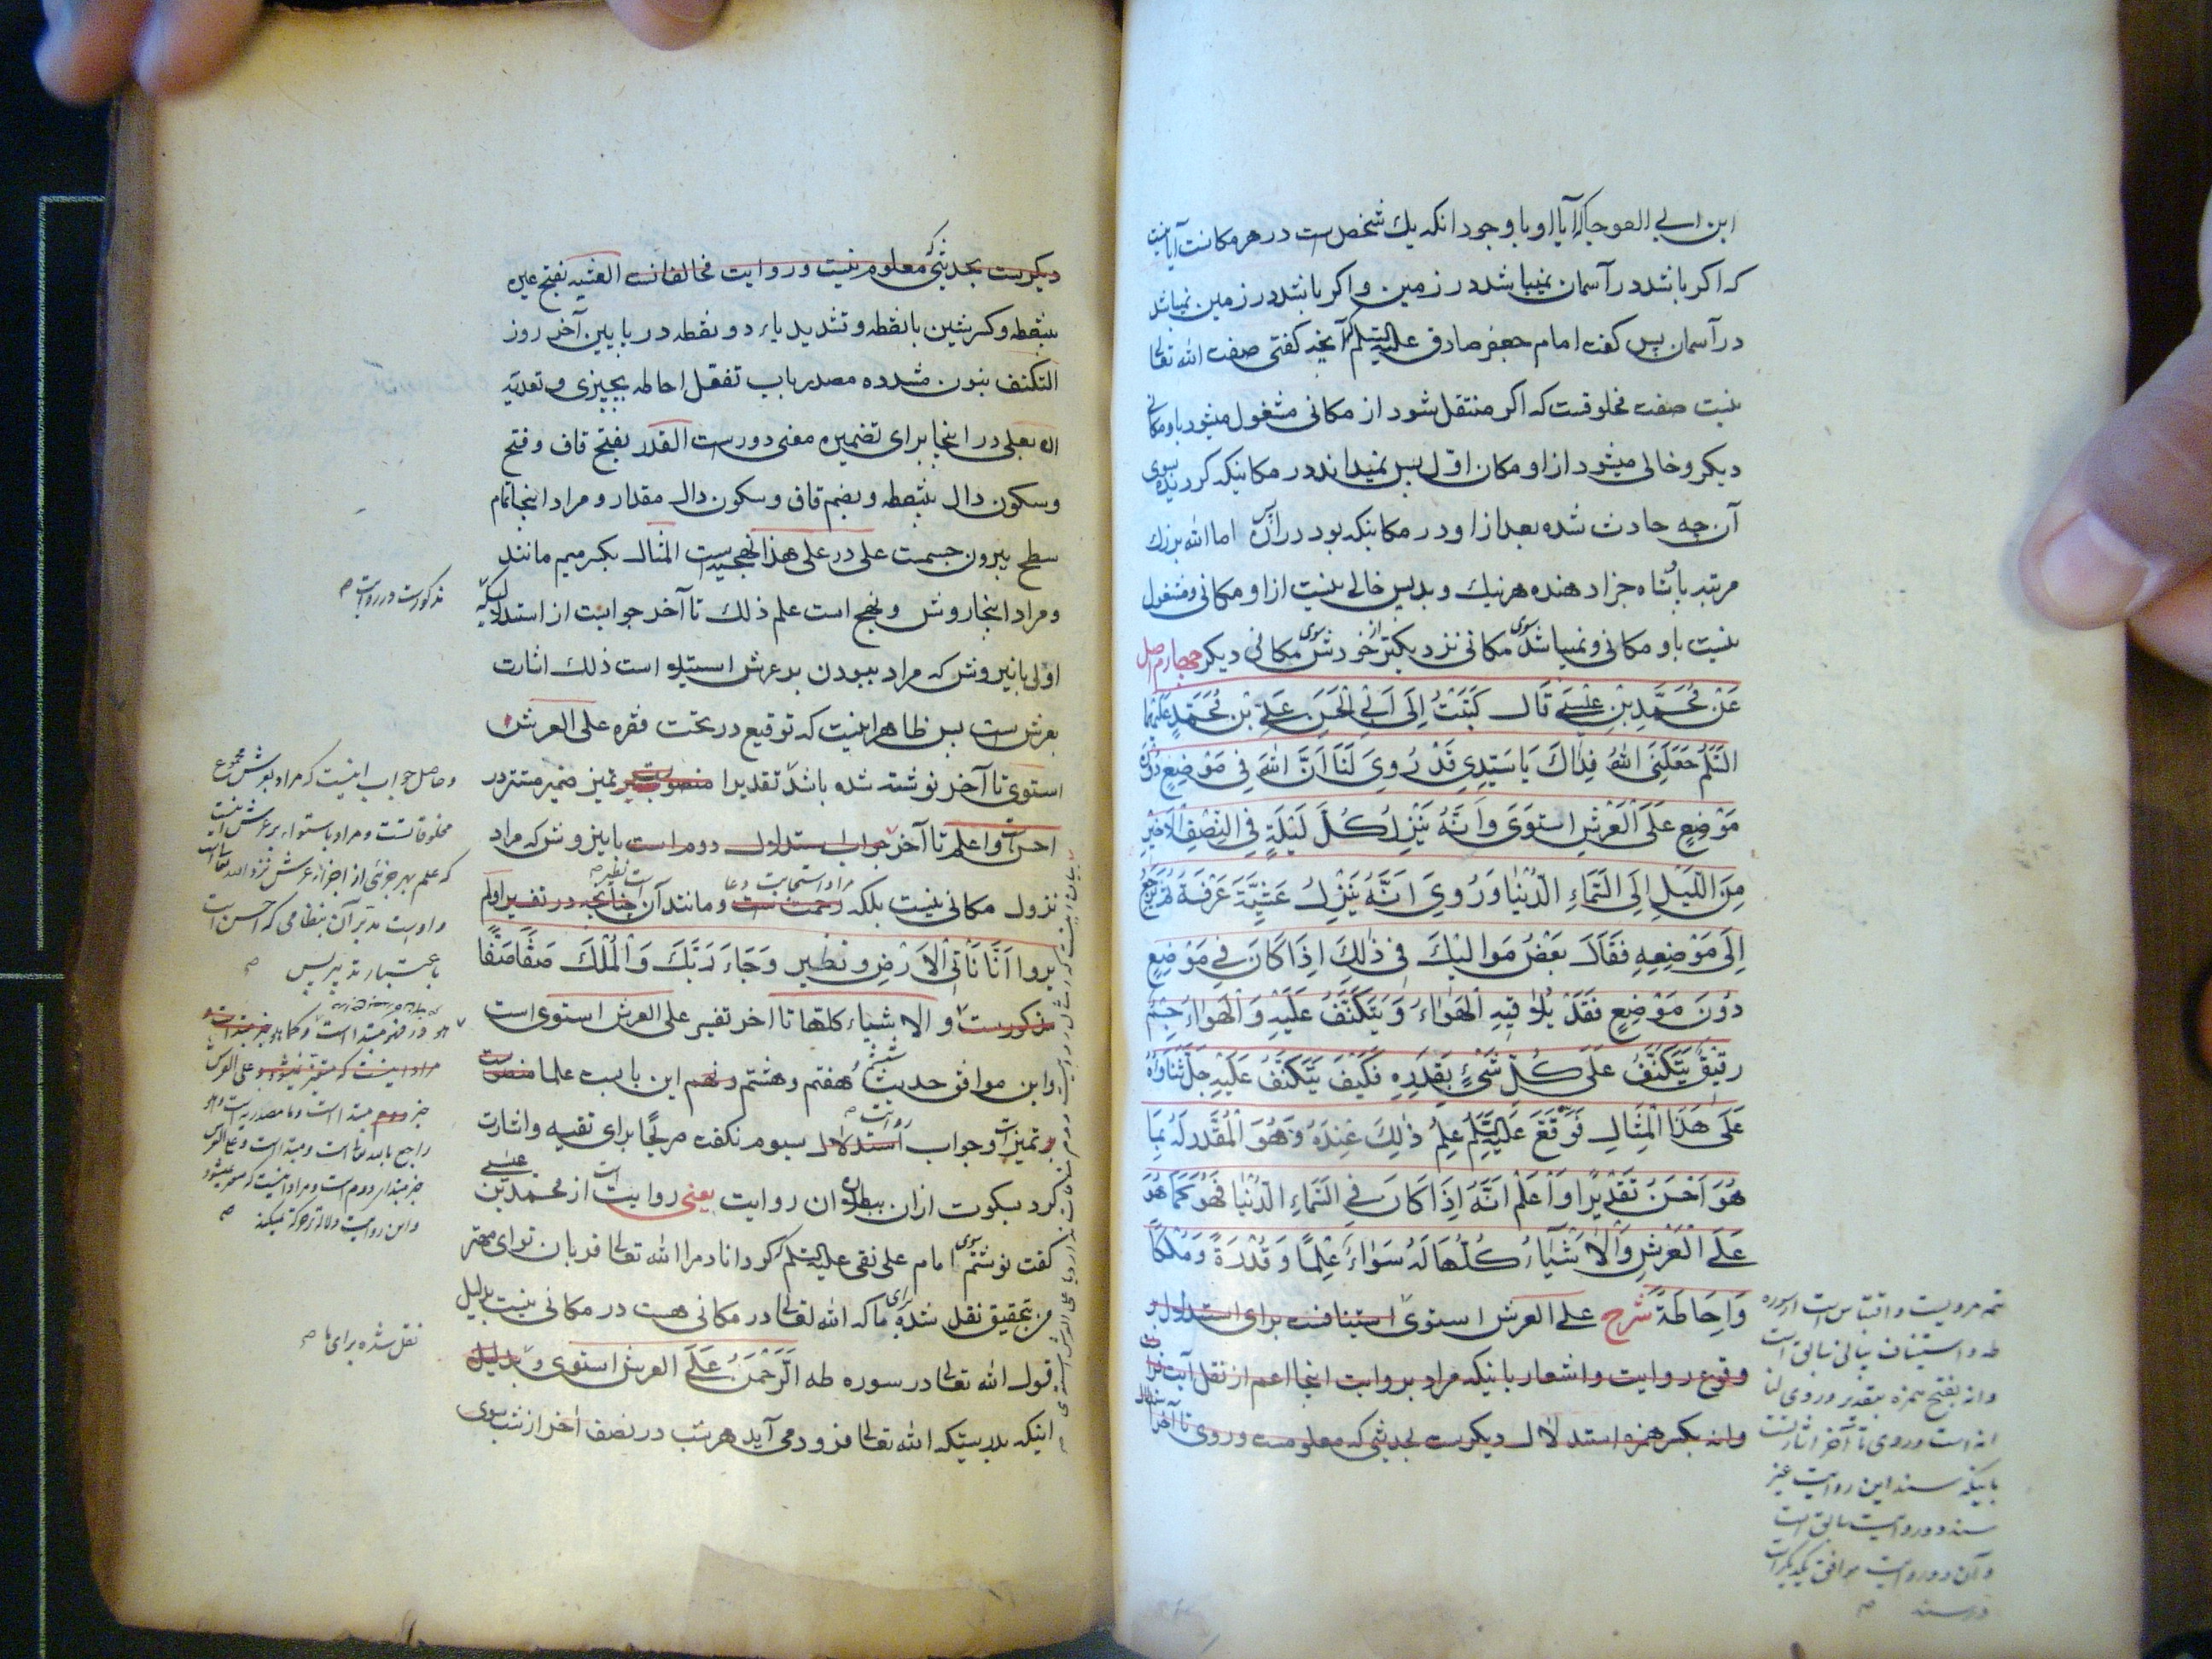 ابن ابی العوجا که آیا او با وجود انکه یك شخص است در هر مکانست آیا نیست
که اکر باشد در آسمان نمیباشد در زمین و اکر باشد در زمین نمیباشد
در آسمان پس کفت امام جعفر صادق علیه السلم آنچه کفتی صفت الله تعالی
نیست صفت مخلوقست که اکر منتقل شود از مکانی مشغول میشود باو مکانی
دیکر و خالی میشود از او مکان اول پس نمیداند در مکانیکه کردیده بسوی
آن چه حادث شده بعد از او در مکانیکه بود در ان اما الله بزرك
مرتبه پادشاه جزا دهنده هر نیك و بد پس خالی نیست از او مکانی و مشغول
نیست باو مکانی و نمیباشد سوی مکانی نزدیکتر از خودش سوی مکانی دیکر چهارم اصل
عَنْ مُحَمَّدِ بْنِ عِيسَى قَالَ كَتَبْتُ إِلَى أَبِي الْحَسَنِ عَلِيِّ بْنِ مُحَمَّدٍ عَلَيْهِمَا
السَّلَم جَعَلَنِيَ اللّٰهُ فِدَاكَ يَا سَيِّدِي قَدْ رُوِيَ لَنَا اَنَّ اللّٰهَ فِي مَوْضِعٍ دُونَ
مَوْضِعٍ عَلَى الْعَرْشِ اسْتَوَى وَاَنَّهُ يَنْزِلُ كُلَّ لَيْلَةٍ فِي النِّصْفِ الْاَخِيرِ
مِنَ اللَّيْلِ اِلَى السَّمَاءِ الدُّنْيَا وَرُوِيَ اَنَّهُ يَنْزِلُ عَشِيَّةَ عَرَفَةَ ثُمَّ يَرْجِعُ
اِلَى مَوْضِعِهِ فَقَالَ بَعْضُ مَوَالِيكَ فِي ذٰلِكَ اِذَا كَانَ فِي مَوْضِعٍ
دُونَ مَوْضِعٍ فَقَدْ يُلَاقِيهِ الْهَوَاءُ وَيَتَكَنَّفُ عَلَيْهِ وَالْهَوَاءُ جِسْمٌ
رَقِيقٌ يَتَكَنَّفُ عَلَى كُلِّ شَيْءٍ بِقَدْرِهِ فَكَيْفَ يَتَكَنَّفُ عَلَيْهِ جَلَّ ثَنَاؤُهُ
عَلَى هَذَا الْمِثَالِ فَوَقَّعَ عَلَيْهِ السَّلَم عِلْمُ ذٰلِكَ عِنْدَهُ وَهُوَ الْمُقَدِّرُ لَهُ بِمَا
هُوَ اَحْسَنُ تَقْدِيرًا وَاعْلَمْ اَنَّهُ اِذَا كَانَ فِي السَّمَاءِ الدُّنْيَا فَهُوَ كَمَا هُوَ
عَلَى الْعَرْشِ وَالْاَشْيَاءُ كُلُّهَا لَهُ سَوَاءٌ عِلْمًا وَقُدْرَةً وَمُلْكًا
وَاِحَاطَةً شرح علی العرش استوی استینافست برای استدلال بر
وقوع روایت و اشعار باینکه مراد بروایت اینجا اعم از نقل آیت
وانه بکسر همزه استدلال دیکرست بحدیثی که معلومست وروی تا آخر
تتمه مرویست و اقتباس است از سوره
طه و استیناف بیانی سابق است
وانه بفتح همزه بتقدیر وروی لنا
انه است وروی تا آخر اشارتست
باینکه سند این روایت غیر
سند دو روایت سابق است
و آن دو روایت موافق یکدیکر است
در سند
دیکرست بحدیثی که معلوم نیست و روایت مخالفانست العشیه بفتح عین
بینقطه و کسر شین بانقطه و تشدید یاء دو نقطه در پایین آخر روز
التکنف بنون مشدده مصدر باب تفعل احاطه بچیزی و تعدیه
ان بعلی در اینجا برای تضمین معنی دورست القدر بفتح قاف و فتح
وسکون دال بینقطه وبضم قاف وسکون دال مقدار و مراد اینجا تمام
سطح بیرون جسمست علی در علی هذا نهجیه است المثال بکسر میم مانند
ومراد اینجا روش و نهج است علم ذلك تا آخر جوابست از استدلال
اولی باین روش که مراد ببودن بر عرش استیلا است ذلك اشارت
بعرش است پس ظاهر اینست که توقیع در تحت فقره علی العرش
استوی تا آخر نوشته شده باشد تقدیرا تمیز ضمیر مستتر در
احسن است واعلم تا آخر جواب استدلال دوم است باین روش که مراد
نزول مکانی نیست بلکه رحمت است و مانند آن چنانچه در تفسیر اولم
یروا اَنَّا نَأْتِی الْاَرْضِ و نظیر وَجَاءَ رَبُّكَ وَالْمَلَكُ صَفًّا صَفًّا
مذکورست و الاشیاء کلها تا اخر تفسیر علی العرش استوی است
واین موافق حدیث ششم و هفتم و هشتم و نهم این بابست علما منصوبست
بر تمیز است وجواب استدلال سیوم نکفت صریحًا برای تقیه و اشارت
کرد بسکوت از ان ببطلان ان روایت یعنی روایت است از محمد بن عیسی
کفت نوشتم سوی امام علی نقی علیه السلم که کرداناد مرا الله تعالی قربان تو ای مهتر
من بتحقیق نقل شده برای ما که الله تعالی در مکانی هست در مکانی نیست بدلیل
قول الله تعالی در سوره طه اَلرَّحْمٰنُ عَلَى العرش استوی و بدلیل
اینکه بدرستیکه الله تعالی فرود می آید هر شب در نصف اخر از شب سوی
مذکورست در روایت
وحاصل جواب اینست که مراد بعرش مجموع
مخلوقاتست و مراد باستواء بر عرش اینست
که علم بهر جزئی از اجزاء عرش نزد الله تعالی است
و اوست مدبر آن بنظامی که احسن است
باعتبار تدبیر پس
راجع بالله تعالی است و مبتدا است وعلی العرش
نقل شده برای ما